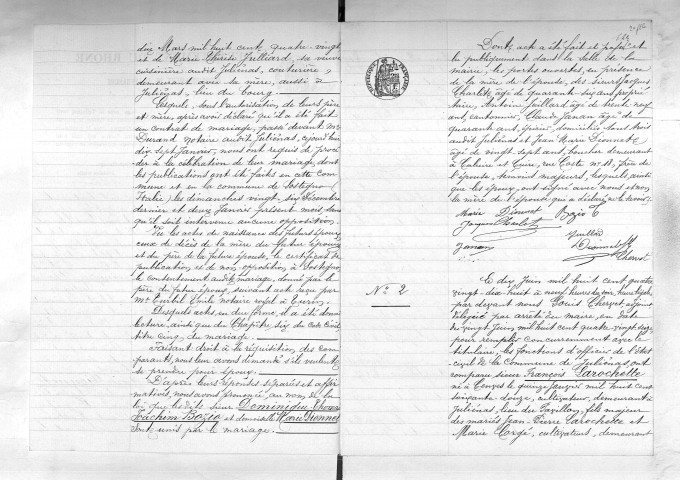 dix Mars mil huit cent quatre-vingt
et de Marie Julliard, sa veuve
cuisinière audit Juliénas, couturière,
demeurant avec sa mère, aussi à
Juliénas, lieu du bourg.
Lesquels, sous l'autorisation de leurs père
et mère, après avoir déclaré qu'il a été fait
un contrat de mariage, passé devant Me
Durand notaire audit Juliénas, ce jourd'hui
dix sept Janvier, nous ont requis de procé
der à la célébration de leur mariage, dont
les publications ont été faites en cette com
mune et en la commune de Sostegno
(Italie) les dimanches vingt six Décembre
dernier et deux Janvier présent mois, sans
qu'il soit intervenu aucune opposition.
Vu les actes de naissance des futurs époux,
ceux de décès de la mère du futur époux
et du père de la future épouse, le certificat de
publication et de non opposition, à Sostegno,
le consentement audit mariage, donné par le
père du futur époux, suivant acte reçu par
Me Emile notaire royal à Turin.
Desquels actes en due forme, il a été donné
lecture, ainsi que du Chapitre six du Code Civil
titre cinq, du mariage.
Faisant droit à la réquisition des com
parants, nous leur avons demandé s'ils veulent
se prendre pour époux.
D'après leurs réponses séparées et affir
matives, nous avons prononcé au nom de la
loi que lesdits sieur Dominique
Joachim Bozio et demoiselle Marie Dionnet
sont unis par le mariage.
Dont acte a été fait et passé
lu publiquement dans la salle de la
mairie, les portes ouvertes, en présence
de la mère de l'épouse, des sieurs Jacques
Charlet, âgé de quarante-six ans, proprié
taire, Antoine Juillard âgé de trente neuf
ans, cantonnier, Claude Janan âgé de
quarante ans, épicier, domiciliés tous trois
audit Juliénas et Jean Marie Dionnet
âgé de vingt sept ans, boucher demeurant
à Caluire et Cuire, rue Coste No 18, frère de
l'épouse, témoins majeurs, lesquels, ainsi
que les époux, ont signé avec nous et non
la mère de l'épouse qui a déclaré ne le savoir.
Marie Dionnet Bozio
Jacques Charlet
Juillard
Janan Dionnet
Chervet
No 2
Le dix Juin mil huit cent quatre
vingt dix huit à neuf heures du soir,
par devant nous Louis Chervet, adjoint
délégué par arrêté du maire, en date
du vingt Juin, mil huit cent quatre-vingt seize
pour remplir concurremment avec le
titulaire, les fonctions d'officier de l'état
civil de la commune de Juliénas, ont
comparu sieur François Larochette
né à le quinze Janvier mil huit cent
soixante douze, cultivateur, demeurant à
Juliénas, lieu du Papillon, fils majeur
des mariés Jean-Pierre Larochette et
Marie, cultivateurs, demeurant